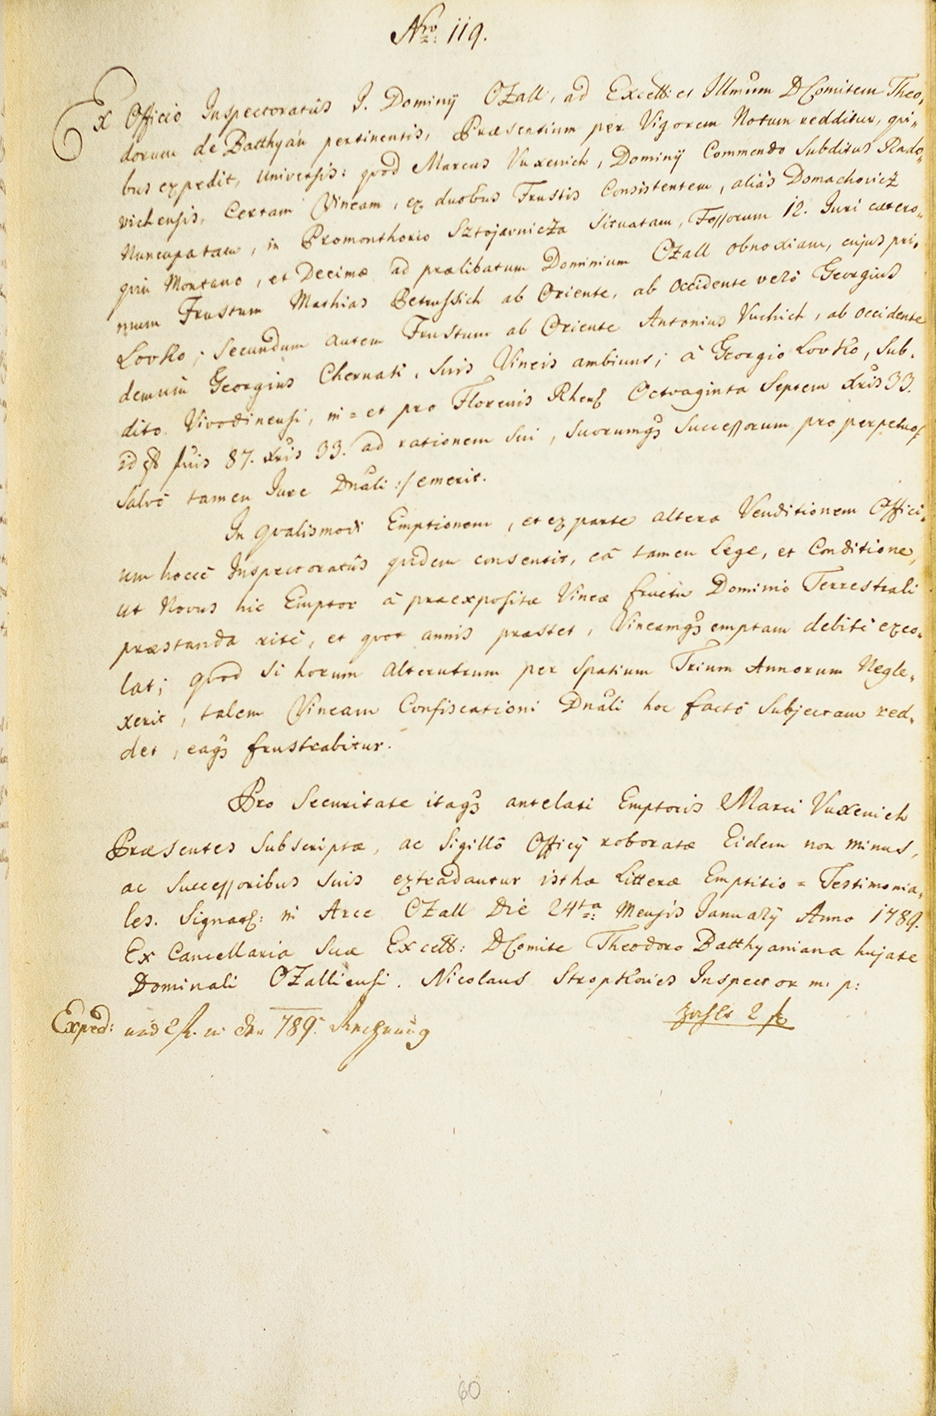 Nro: 119.
Ex Officio Inspectoratus I. Dominÿ OZall, ad Excell: et Illmum D Comitem Theo,
dorum de Batthyán pertinentis, Præsentium per Vigorem Notum redditur, qvi,
bus expedit, Universis: qvod Marcus Vuxenich, Dominÿ Commendo Subditus Rado,
vichensis, Certam Vineam, ex duobus Frustis Consistentem, aliàs Domachovicz
Nuncupatam, in Promonthorio Sztojavnicza Situatam, Fossorum 12. Juri cætero,
qvin Montano, et Decimæ ad prælibatum Dominium OZall obnoxiam, cujus pri,
mum Frustum Mathias Petrussich ab Oriente, ab Occidente verò Georgius
Lovko; Secundum autem Frustum ab Oriente Antonius Vuchich, ab occidente
demum Georgius Chernati, Suis Vineis ambiunt; à Georgio Lovko, Sub,
dito Vivodinensi, in = et pro Florenis Rhens Octvaginta Septem xris 33.
id est fnis 87. xris 33. ad rationem Sui, Suorumqs Successorum pro perpetuo
Salvô tamen Jure Dnali :/ emerit.
In qvalismodi Emptionem, et ex parte altera Venditionem Offici,
um hocce Inspectoratûs qvidem consentit, eâ tamen Lege, et Conditione,
ut Novus hic Emptor à præexpositæ Vineæ fructu Dominio Terrestrali
præstanda ritè, et qvot annis præstet, Vineamqs emptam debitè exco,
lat; qvod Si horum alterutrum per Spatium Trium Annorum Negle,
xerit, talem Vineam Confiscationi Dnali hoc factô Subjectam red,
det, eaqs frustrabitur.
Pro Securitate itaqs antelati Emptoris Marci Vuxenich
Præsentes Subscriptæ, ac Sigillô Officÿ roboratæ Eidem non minus,
ac Successoribus Suis extradantur isthæ Litteræ Emptitio = Testimonia,
les. Signat: in Arce OZall Die 24ta: Mensis Januarÿ Anno 1789.
Ex Cancellaria Suæ Excell: D Comite Theodoro Batthyaniana hujate
Dominali OZalliensi. Nicolaus Stropkovics Inspector m: p:
Exped: und 2 f. in 789. Rechnung
zahlt 2 f
60